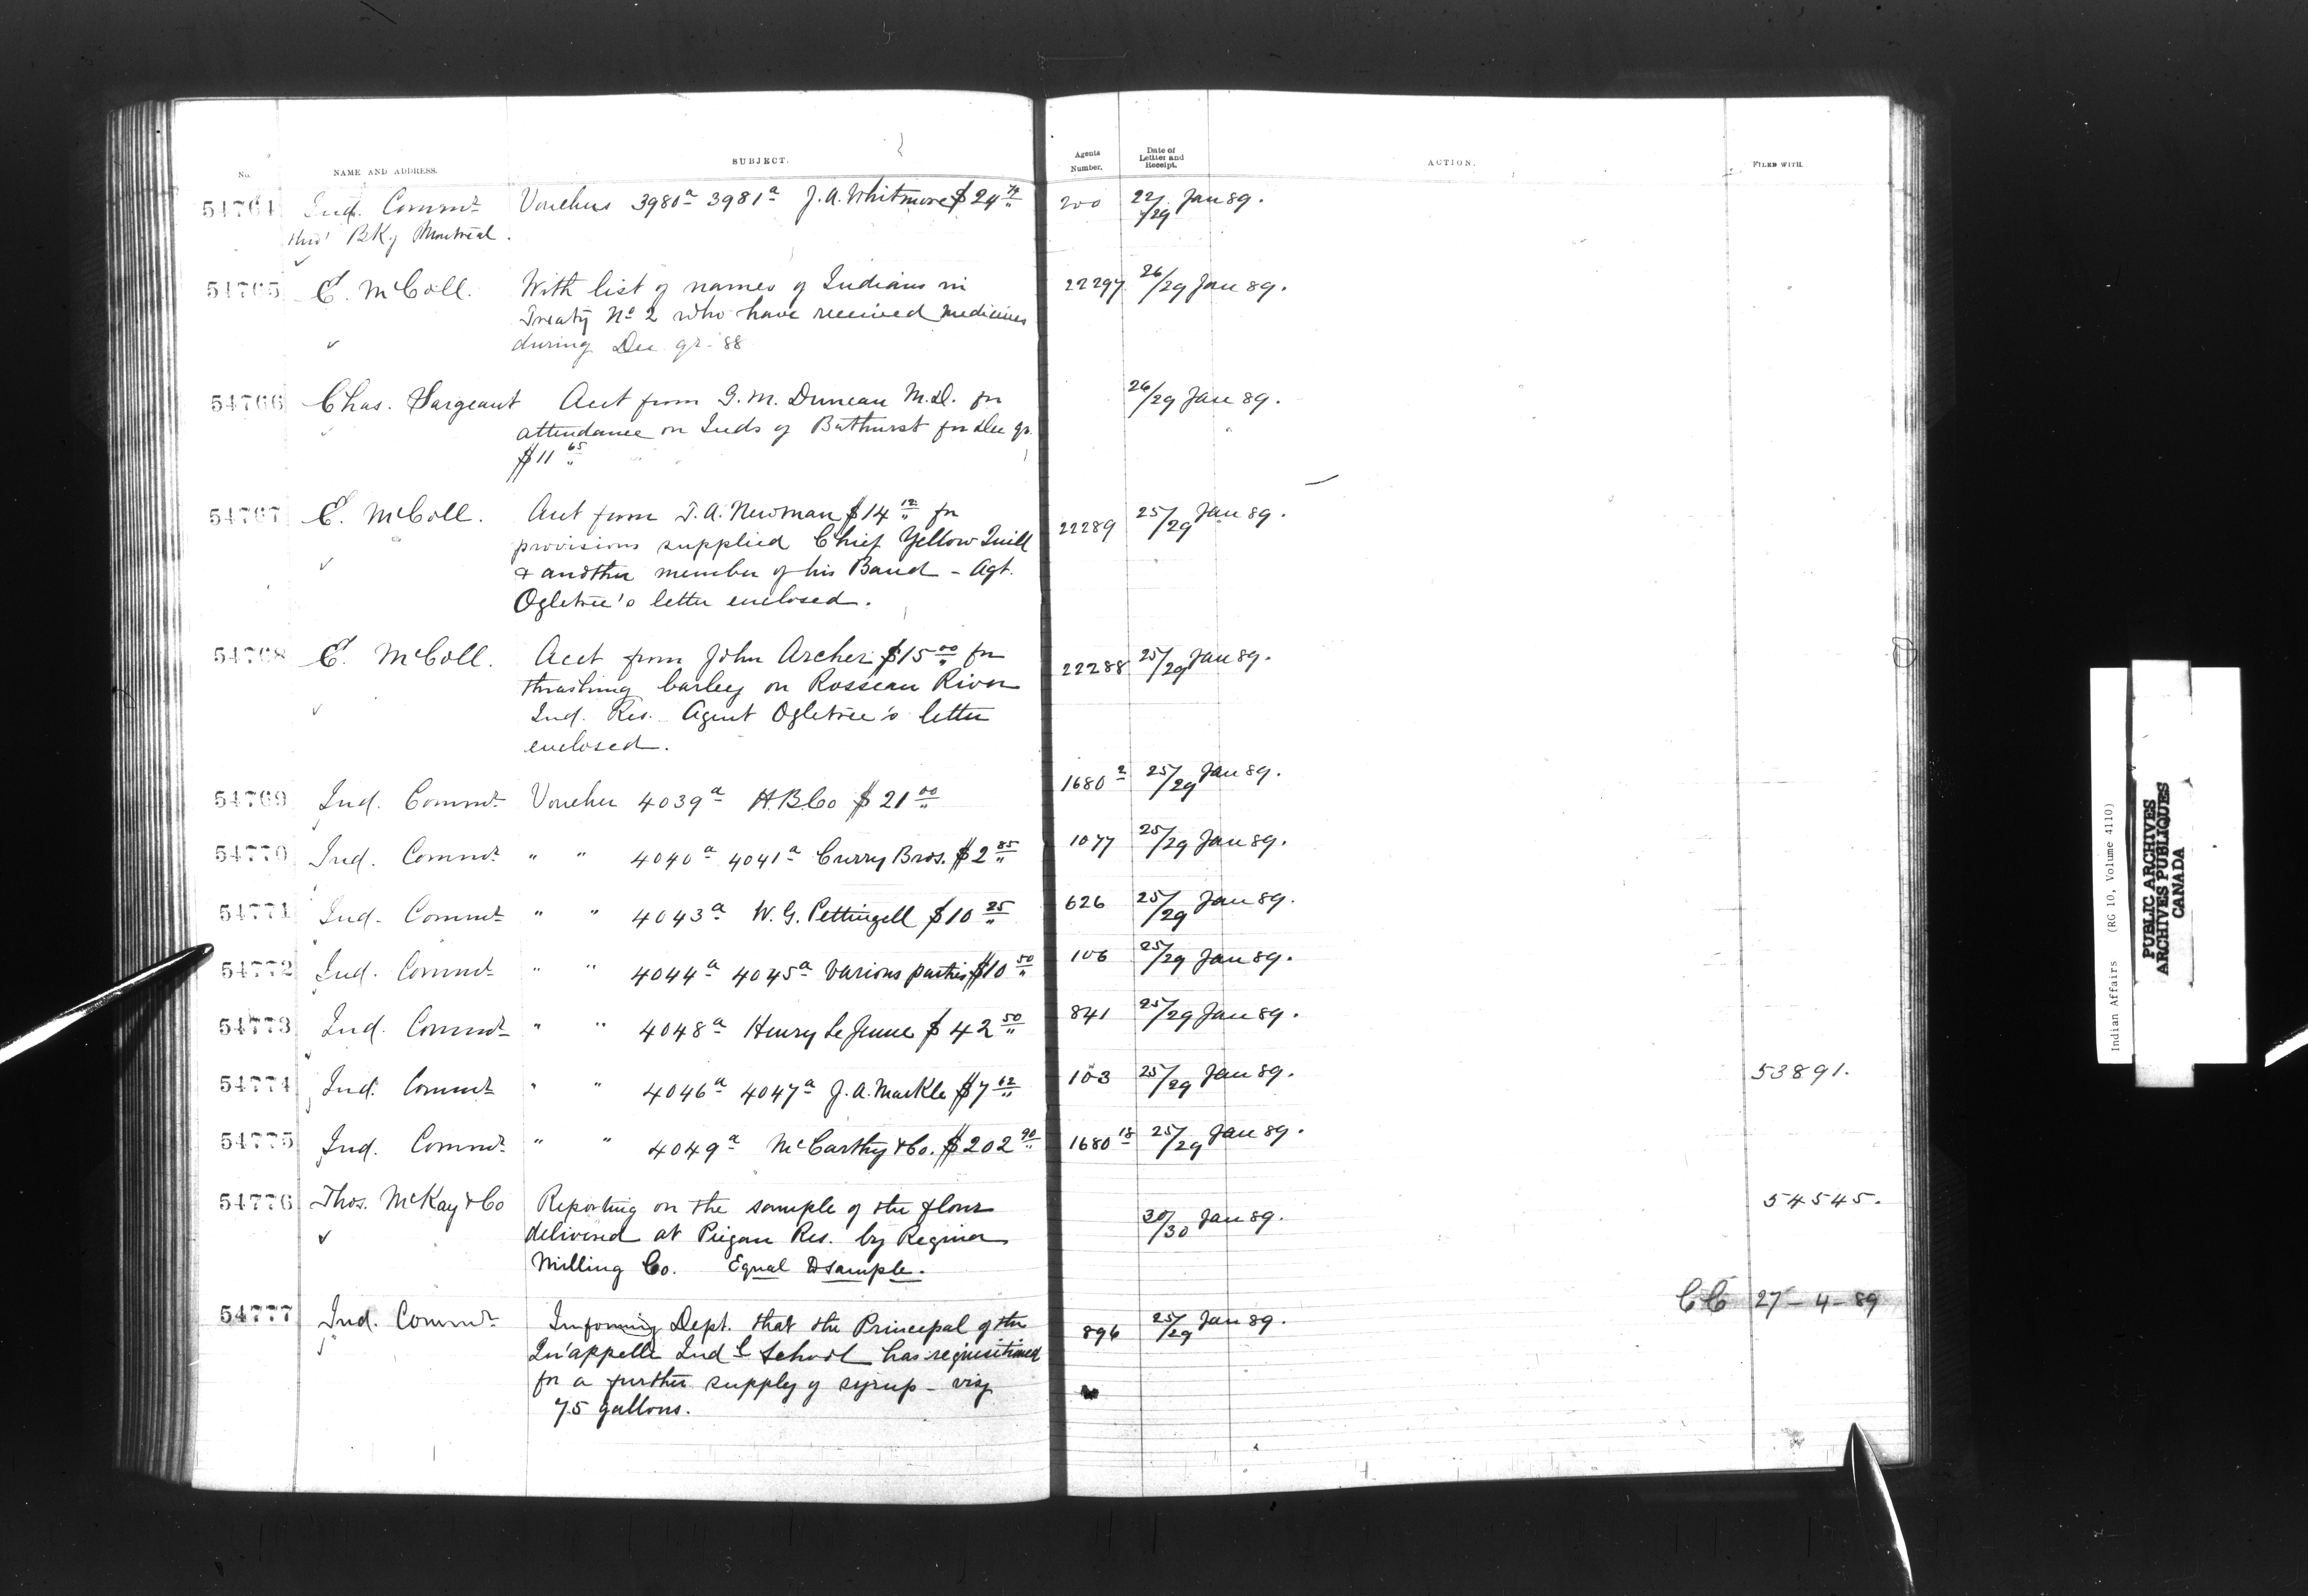 No. NAME AND ADDRESS. SUBJECT. Agents Number. Date of Letter and Receipt. ACTION. FILED WITH.
54764 Ind. Commr Vouchers 3980a 3981a J.A. Whitmore $24 200 22/29 Jan 89.
thro' BK of Montreal.
54765 E. McColl. With list of names of Indians in 22297 26/29 Jan 89.
Treaty No 2 who have received medicines
during Dec qr. 88
54766 Chas. Sargeant Acct from G.M. Duncan M.D. for 26/29 Jan 89.
attendance on Inds of Bathurst for Dec qr.
$11 65
54767 E. McColl. Acct from T.A. Newman $14 12 for 22289 25/29 Jan 89.
provisions supplied Chief Yellow Quill
& another member of his Band - Agt.
Ogletree's letter enclosed.
54768 E. McColl. Acct from John Archer $15 00 for 22288 25/29 Jan 89.
thrashing barley on Rosseau River
Ind. Res. Agent Ogletree's letter
enclosed.
54769 Ind. Commr Voucher 4039a H.B.Co $21 00 1680 2 25/29 Jan 89.
54770 Ind. Commr " " 4040a 4041a Curry Bros. $2 85 1077 25/29 Jan 89.
54771 Ind. Commr " " 4043a W.G. Pettingell $10 25 626 25/29 Jan 89.
54772 Ind. Commr " " 4044a 4045a Various parties $10 50 106 25/29 Jan 89.
54773 Ind. Commr " " 4048a Henry Le Jeune $42 50 841 25/29 Jan 89.
54774 Ind. Commr " " 4046a 4047a J.A. Markle $7 62 103 25/29 Jan 89. 53891.
54775 Ind. Commr " " 4049a McCarthy & Co. $202 90 1680 18 25/29 Jan 89.
54776 Thos. McKay & Co Reporting on the sample of the flour 30/30 Jan 89. 54545.
delivered at Piegan Res. by Regina
Milling Co. Equal to sample.
54777 Ind. Commr Informing Dept. that the Principal of the 896 25/29 Jan 89. CC 27-4-89
Qu'appelle Indl School has requisitioned
for a further supply of syrup - viz
75 gallons.
Indian Affairs (RG 10, Volume 4110)
PUBLIC ARCHIVES
ARCHIVES PUBLIQUES
CANADA